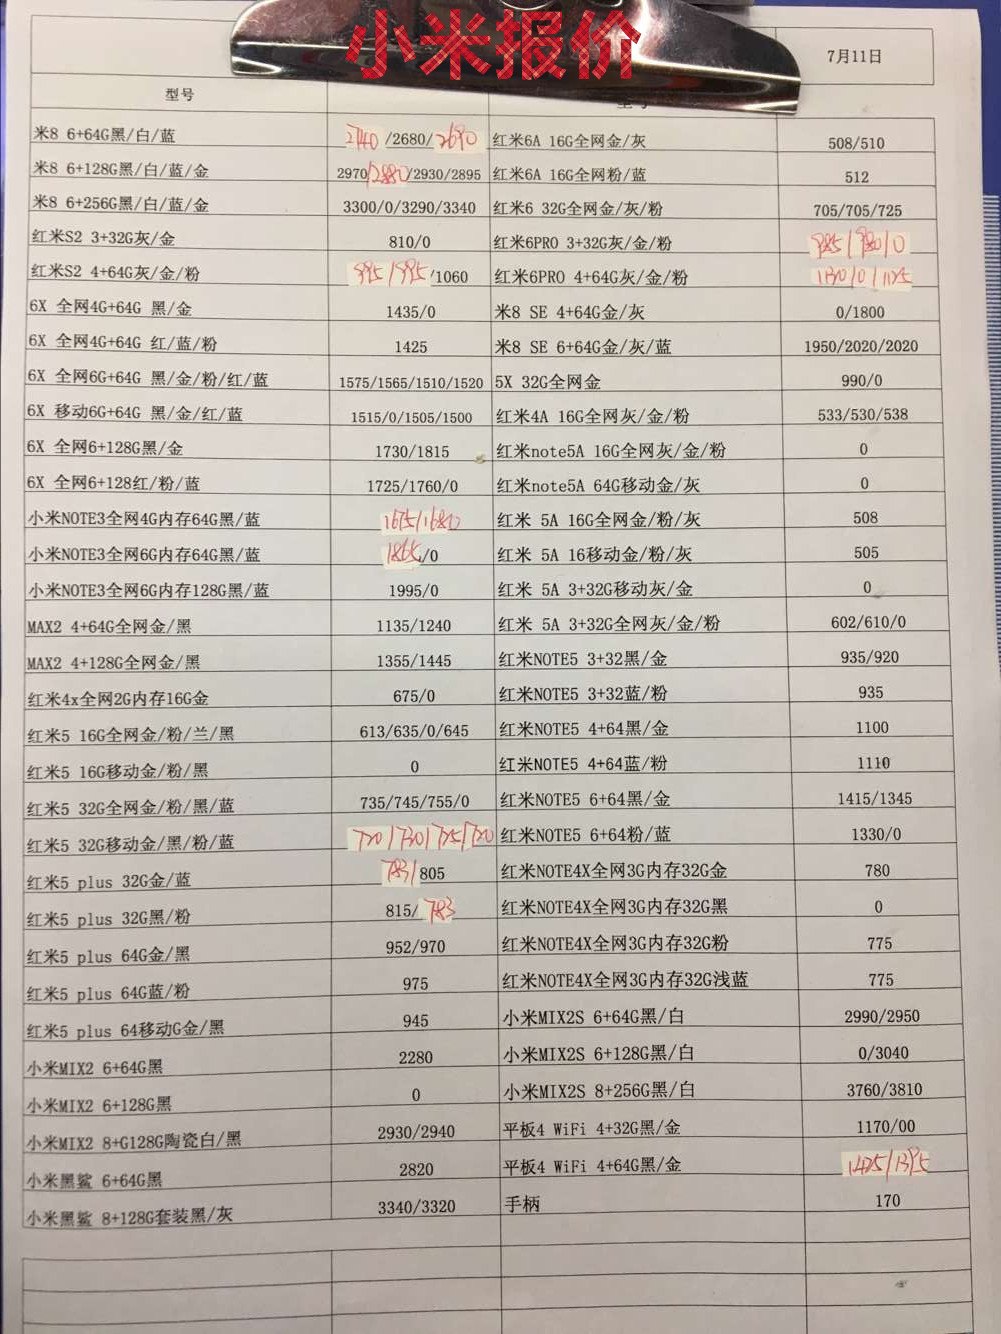 小米报价
7月11日
型号
米8 6+64G黑/白/蓝 2740/2680/2690 红米6A 16G全网金/灰 508/510
米8 6+128G黑/白/蓝/金 2970/2880/2930/2895 红米6A 16G全网粉/蓝 512
米8 6+256G黑/白/蓝/金 3300/0/3290/3340 红米6 32G全网金/灰/粉 705/705/725
红米S2 3+32G灰/金 810/0 红米6PRO 3+32G灰/金/粉 985/980/0
红米S2 4+64G灰/金/粉 995/995/1060 红米6PRO 4+64G灰/金/粉
6X 全网4G+64G 黑/金 1435/0 米8 SE 4+64G金/灰 0/1800
6X 全网4G+64G 红/蓝/粉 1425 米8 SE 6+64G金/灰/蓝 1950/2020/2020
6X 全网6G+64G 黑/金/粉/红/蓝 1575/1565/1510/1520 5X 32G全网金 990/0
6X 移动6G+64G 黑/金/红/蓝 1515/0/1505/1500 红米4A 16G全网灰/金/粉 533/530/538
6X 全网6+128G黑/金 1730/1815 红米note5A 16G全网灰/金/粉 0
6X 全网6+128红/粉/蓝 1725/1760/0 红米note5A 64G移动金/灰 0
小米NOTE3全网4G内存64G黑/蓝 1675/1680 红米 5A 16G全网金/粉/灰 508
小米NOTE3全网6G内存64G黑/蓝 1865/0 红米 5A 16移动金/粉/灰 505
小米NOTE3全网6G内存128G黑/蓝 1995/0 红米 5A 3+32G移动灰/金 0
MAX2 4+64G全网金/黑 1135/1240 红米 5A 3+32G全网灰/金/粉 602/610/0
MAX2 4+128G全网金/黑 1355/1445 红米NOTE5 3+32黑/金 935/920
红米4x全网2G内存16G金 675/0 红米NOTE5 3+32蓝/粉 935
红米5 16G全网金/粉/兰/黑 613/635/0/645 红米NOTE5 4+64黑/金 1100
红米5 16G移动金/粉/黑 0 红米NOTE5 4+64蓝/粉 1110
红米5 32G全网金/粉/黑/蓝 735/745/755/0 红米NOTE5 6+64黑/金 1415/1345
红米5 32G移动金/黑/粉/蓝 720/730/725/720 红米NOTE5 6+64粉/蓝 1330/0
红米5 plus 32G金/蓝 783/805 红米NOTE4X全网3G内存32G金 780
红米5 plus 32G黑/粉 815/783 红米NOTE4X全网3G内存32G黑 0
红米5 plus 64G金/黑 952/970 红米NOTE4X全网3G内存32G粉 775
红米5 plus 64G蓝/粉 975 红米NOTE4X全网3G内存32G浅蓝 775
红米5 plus 64移动G金/黑 945 小米MIX2S 6+64G黑/白 2990/2950
小米MIX2 6+64G黑 2280 小米MIX2S 6+128G黑/白 0/3040
小米MIX2 6+128G黑 0 小米MIX2S 8+256G黑/白 3760/3810
小米MIX2 8+G128G陶瓷白/黑 2930/2940 平板4 WiFi 4+32G黑/金 1170/00
小米黑鲨 6+64G黑 2820 平板4 WiFi 4+64G黑/金 1425/1395
小米黑鲨 8+128G套装黑/灰 3340/3320 手柄 170